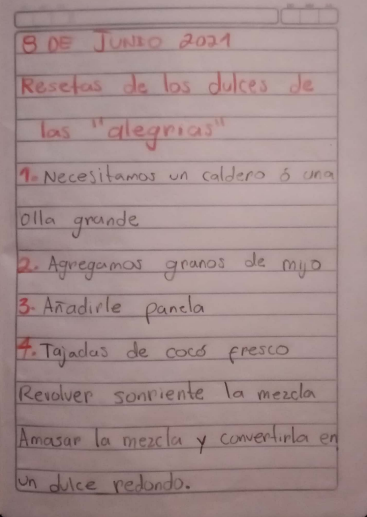 8 DE JUNIO 2021
Resetas de los dulces de
las "alegrias"
1. Necesitamos un caldero ó una
olla grande
2. Agregamos granos de mijo
3. Añadirle panela
4. Tajadas de coco fresco
Revolver sonriente la mezcla
Amasar la mezcla y convertirla en
un dulce redondo.